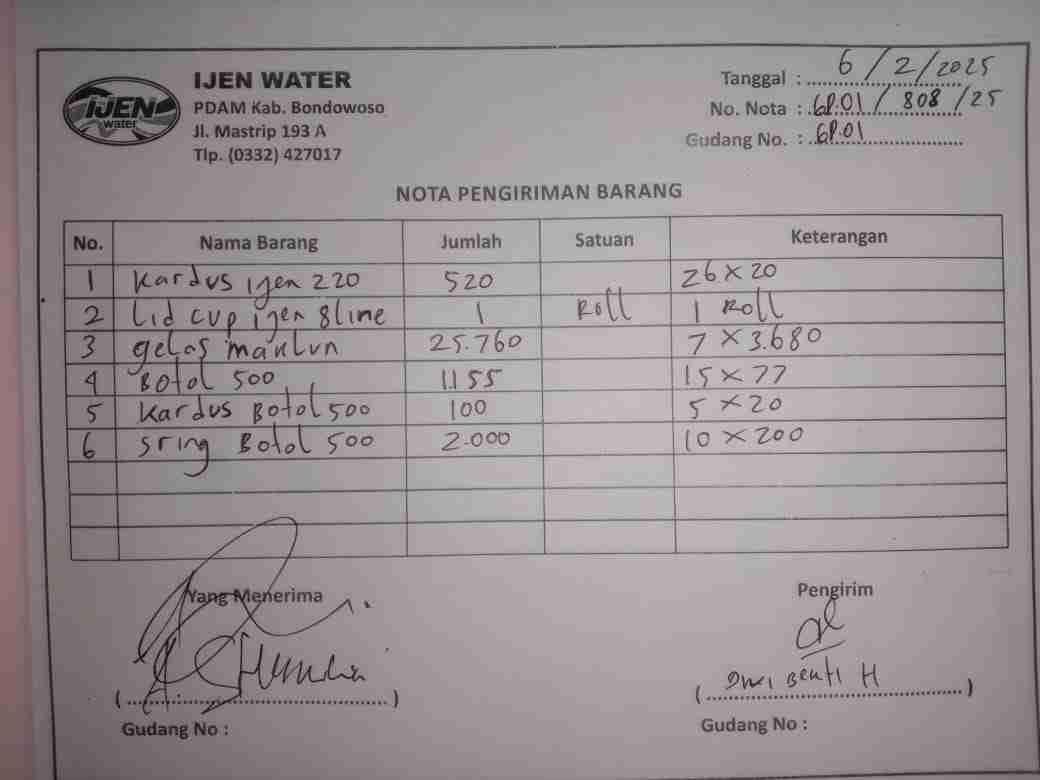 IJEN water
IJEN WATER
PDAM Kab. Bondowoso
Jl. Mastrip 193 A
Tlp. (0332) 427017
Tanggal : 6/2/2025
No. Nota : GP.01/808/25
Gudang No. : GP.01
NOTA PENGIRIMAN BARANG
No. Nama Barang Jumlah Satuan Keterangan
1 Kardus ijen 220 520 26 x 20
2 Lid cup ijen 8line 1 Roll 1 Roll
3 gelas 25.760 7 x 3.680
4 Botol 500 1.155 15 x 77
5 Kardus Botol 500 100 5 x 20
6 Sring Botol 500 2.000 10 x 200
Yang Menerima Pengirim
( ) ( Dwi H )
Gudang No : Gudang No :